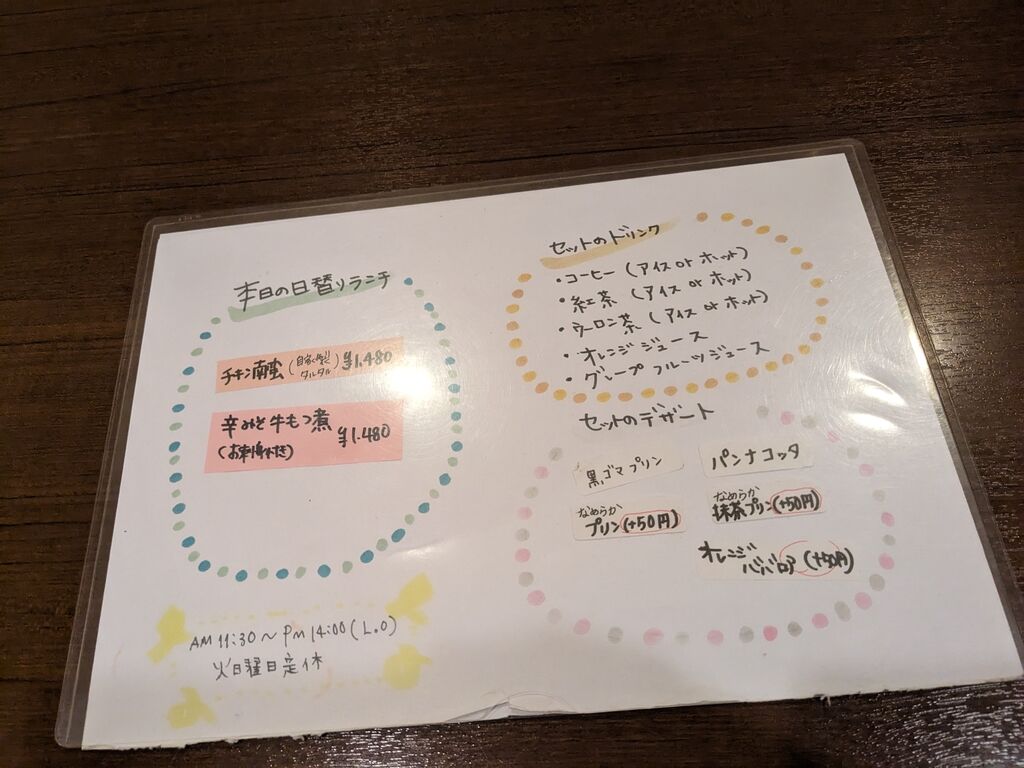 本日の日替りランチ
チキン南蛮(自家製タルタル)¥1.480
辛みそ牛もつ煮
(お刺身付き) ¥1.480
AM 11:30〜PM 14:00(L.O)
火曜日定休
セットのドリンク
・コーヒー(アイス or ホット)
・紅茶(アイス or ホット)
・ウーロン茶(アイス or ホット)
・オレンジジュース
・グレープフルーツジュース
セットのデザート
黒ゴマプリン
パンナコッタ
なめらか
プリン(+50円)
なめらか
抹茶プリン(+50円)
オレンジ
ババロア(+50円)